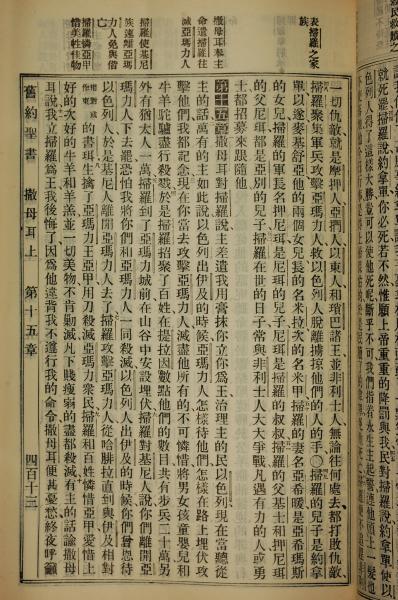 就死罷掃羅說約拿單你必死若不然惟願上帝重重的降罰與我民對掃羅說約拿單使以
色列人得了這樣大勝豈可以使他死呢斷乎不可我們指着永生主起誓連他頭上一根髮也
表掃羅之家族
一切仇敵就是摩押人亞捫人以東人和瑣巴諸王並非利士人無論往何處去都打敗仇敵
掃羅聚集軍兵攻擊亞瑪力人救以色列人脫離擄掠他們的人的手〇掃羅的兒子是約拿
單以遂麥基舒亞他的兩個女兒長的名米拉次的名米甲掃羅的妻名亞希暖是亞希瑪斯
的女兒掃羅的軍長名押尼珥是尼珥的兒子尼珥是掃羅的叔叔掃羅的父基士和押尼珥
的父尼珥都是亞別的兒子掃羅在世的日子常與非利士人大大爭戰凡遇有力的人或勇
士都招募來跟隨他
撒母耳奉主
命遣掃羅往
滅亞瑪力人
第十五章撒母耳對掃羅說主差遣我用膏抹你立你爲王治理主的民以色列現在當聽從
主的話萬有的主如此說以色列出伊及的時候亞瑪力人怎樣待他們怎樣在路上埋伏攻
擊他們我都記念現在你當去攻擊亞瑪力人滅盡他所有的不可憐惜將男女孩童嬰兒和
牛羊駝驢盡行殺戮於是掃羅招聚了百姓在提拉因數點他們的數目共有步兵二十萬另
掃羅使基尼
族遠離亞瑪
力人免與偕
亡
外有猶大人一萬掃羅到了亞瑪力城前在山谷中安設埋伏掃羅對基尼人說你們離開亞
瑪力人下去罷恐怕我將你們和亞瑪力人一同殺滅以色列人出伊及的時候你們曾恩待
以色列人於是基尼人離開亞瑪力人去了掃羅攻擊亞瑪力人從哈腓拉直到與伊及相對
掃羅憐亞甲
惜美牲佳物
的書珥生擒了亞瑪力王亞甲用刀殺滅亞瑪力衆民掃羅和百姓憐惜亞甲愛惜上
好的次好的牛羊和羊羔並一切美物不肯剿滅凡下賤瘦弱的盡都殺滅有主的話諭撒母
耳說我立掃羅爲王我後悔了因爲他違背我不遵行我的命令撒母耳便甚憂愁終夜呼籲
舊約聖書 撒母耳上 第十五章 四百十三